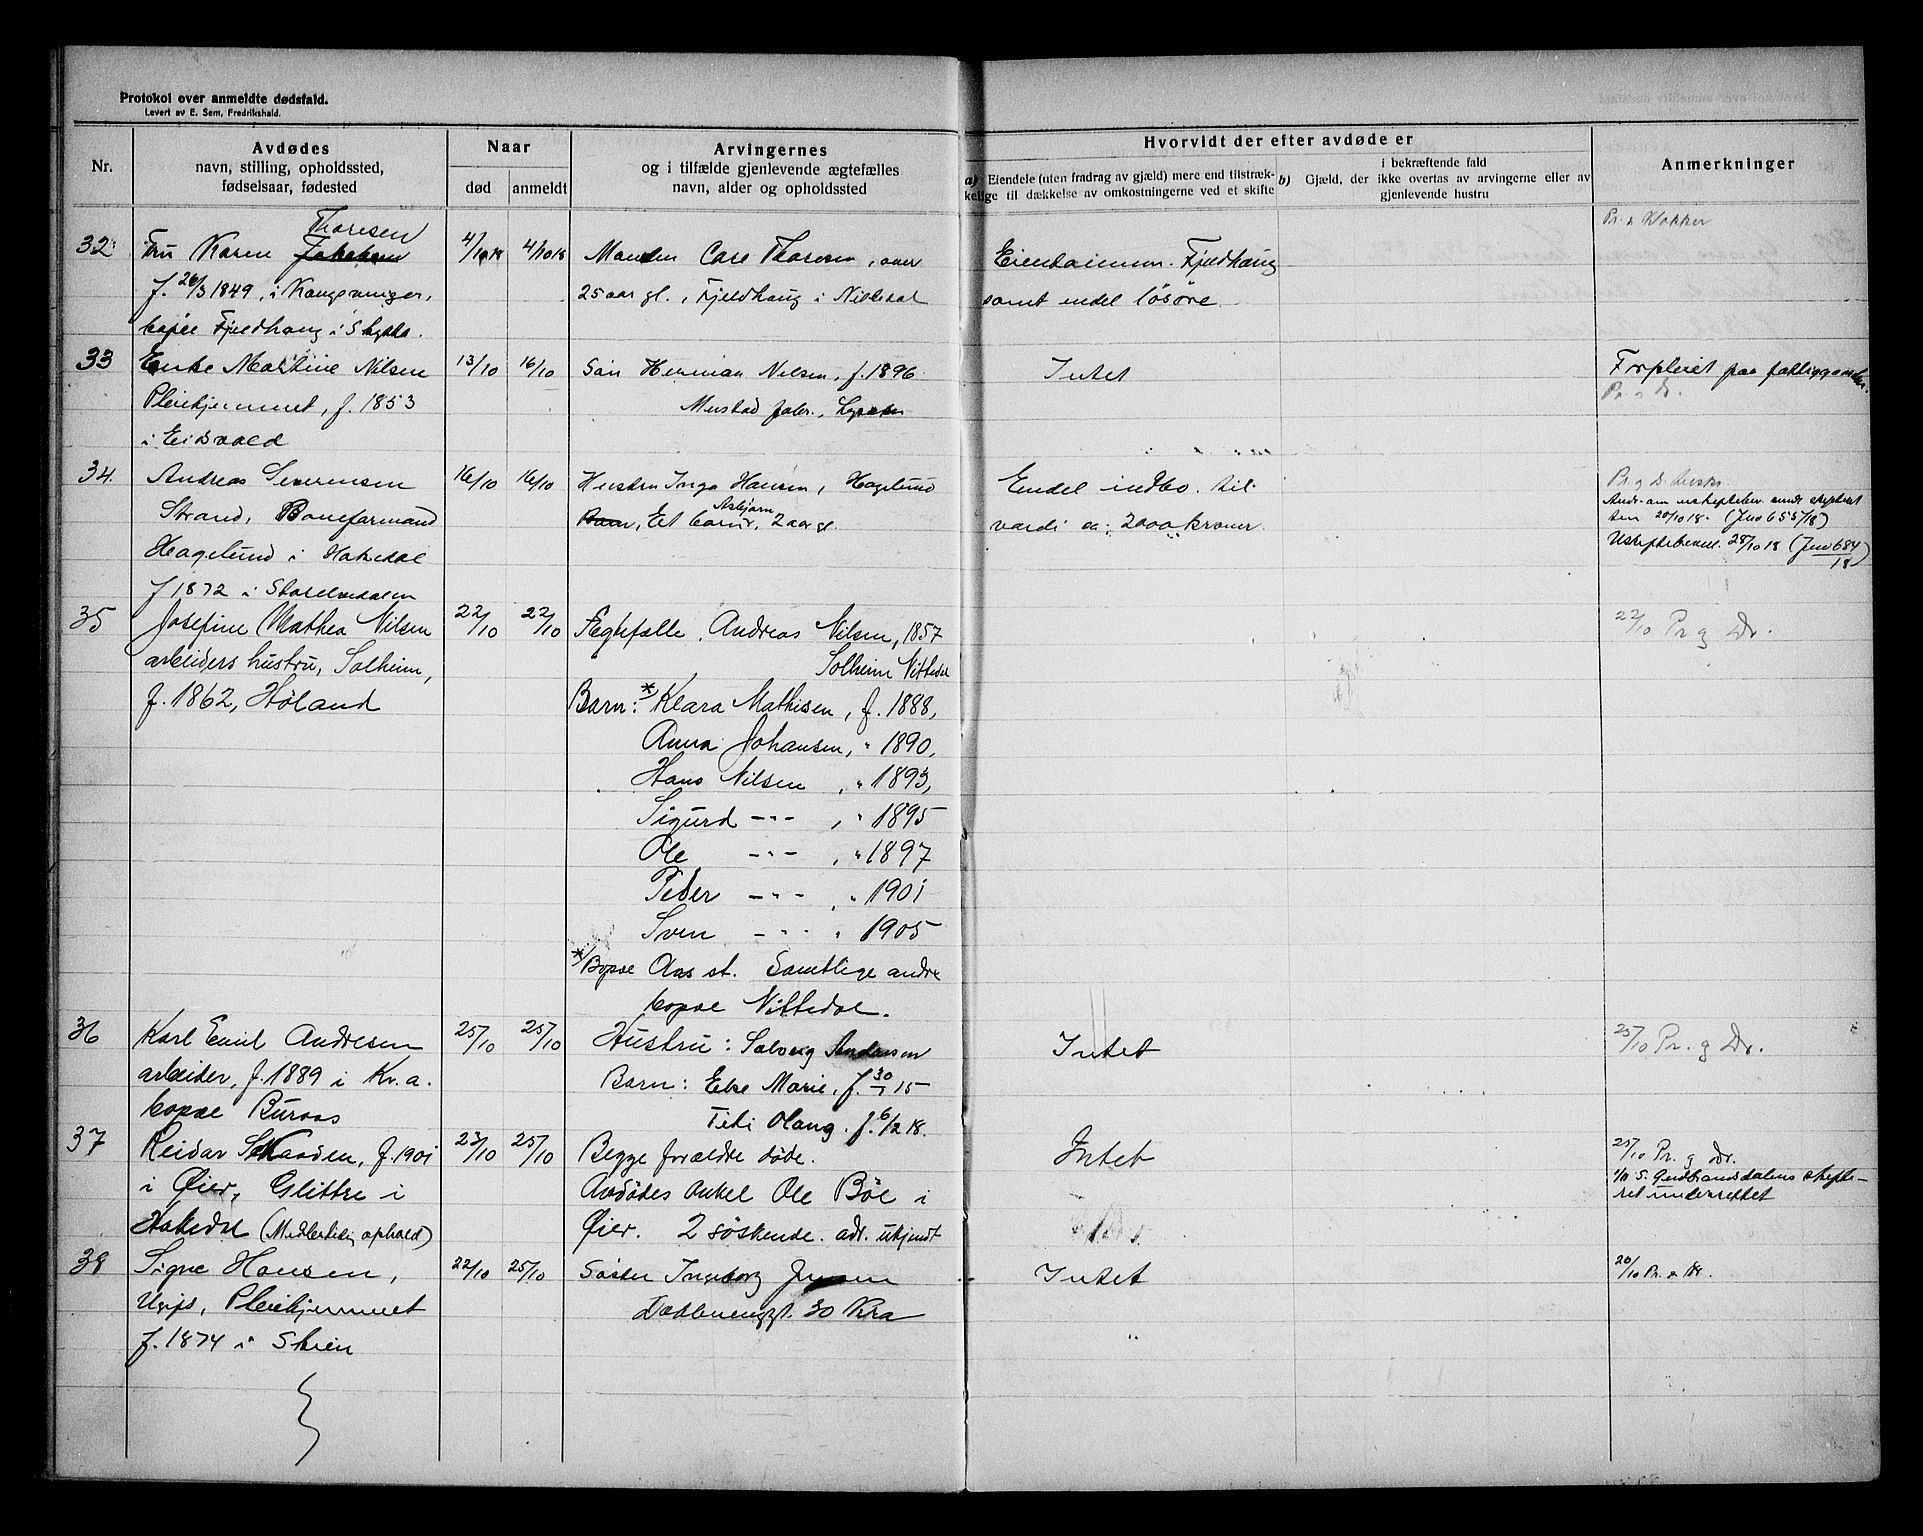 Protokol over anmeldte dødsfald.
Levert av E. Sem, Fredrikshald.
Nr.
Avdødes
navn, stilling, opholdssted,
fødselsaar, fødested
Naar
død
anmeldt
Arvingernes
og i tilfælde gjenlevende ægtefælles
navn, alder og opholdssted
Hvorvidt der efter avdøde er
a) Eiendele (uten fradrag av gjæld) mere end tilstræk-
kelige til dækkelse av omkostningerne ved et skifte
i bekræftende fald
b) Gjæld, der ikke overtas av arvingerne eller av
gjenlevende hustru
Anmerkninger
32
Thoresen
Fru Karen
f. 26/3 1849, i Kongsvinger,
bopæl Fjeldhaug i Skytta.
4/10 18
4/10 18
Manden Carl Thoresen, over
25 aar gl., Fjeldhaug i Nittedal
Eiendommen Fjeldhaug
samt endel løsøre.
33
Enke Martine Nilsen
Pleiehjemmet, f. 1853
i Eidsvold
13/10
16/10
Søn Herman Nilsen, f. 1896
Mustad fabr., Lysaker
Intet
Forpleiet paa fattiggaarden.
Pr. & Dr.
34.
Andreas Severinsen
Strand, Baneformand
Hagelund i Hakedal
f 1872 i Storelvedalen
16/10
16/10
Hustru Inga Hansen, Hagelund
Asbjørn
Barn, Et barn, 2 aar gl.
Endel indbo. til
værdi ca: 2000 kroner
ten 20/10 18. (Jno 655/18)
Uskiftebevil. 28/10 18 (Jno 684/18)
35
Josefine Mathea Nilsen
arbeiders hustru, Solheim,
f. 1862, Høland
22/10
22/10
Ægtefælle. Andreas Nilsen, 1857
Solheim Nittedal
Barn: * Klara Mathisen, f. 1888,
Anna Johansen, " 1890,
Hans Nilsen, " 1893,
Sigurd -"- , " 1895
Ole -"- , " 1897
Peder -"- , " 1901
Sven -"- " 1905
*) Bopæl Aas st. Samtlige andre
bopæl Nittedal.
22/10 Pr. g Dr.
36
Karl Emil Andresen
arbeider, f. 1889 i Kr.a.
bopæl Buraas
25/10
25/10
Hustru: Solveig Andresen
Barn: Else Marie, f. 30/7 15
f. 6/2 18.
Intet
25/10 Pr. g Dr.
37
Reidar Skaaden, f. 1901
i Øier, Glittre i
Hakedal (Midlertidig ophold)
23/10
25/10
Begge forældre døde.
Avdødes onkel Ole Bøe i
Øier. 2 søskende. adr. ukjendt
Intet
25/10 Pr. g Dr.
1/11 S. Gudbransdalens skifte-
ret underrettet
38
Signe Hansen,
Ugift, Pleiehjemmet
f. 1874 i Skien
22/10
25/10
Søster Ingeborg Jensen
30 Kra
Intet